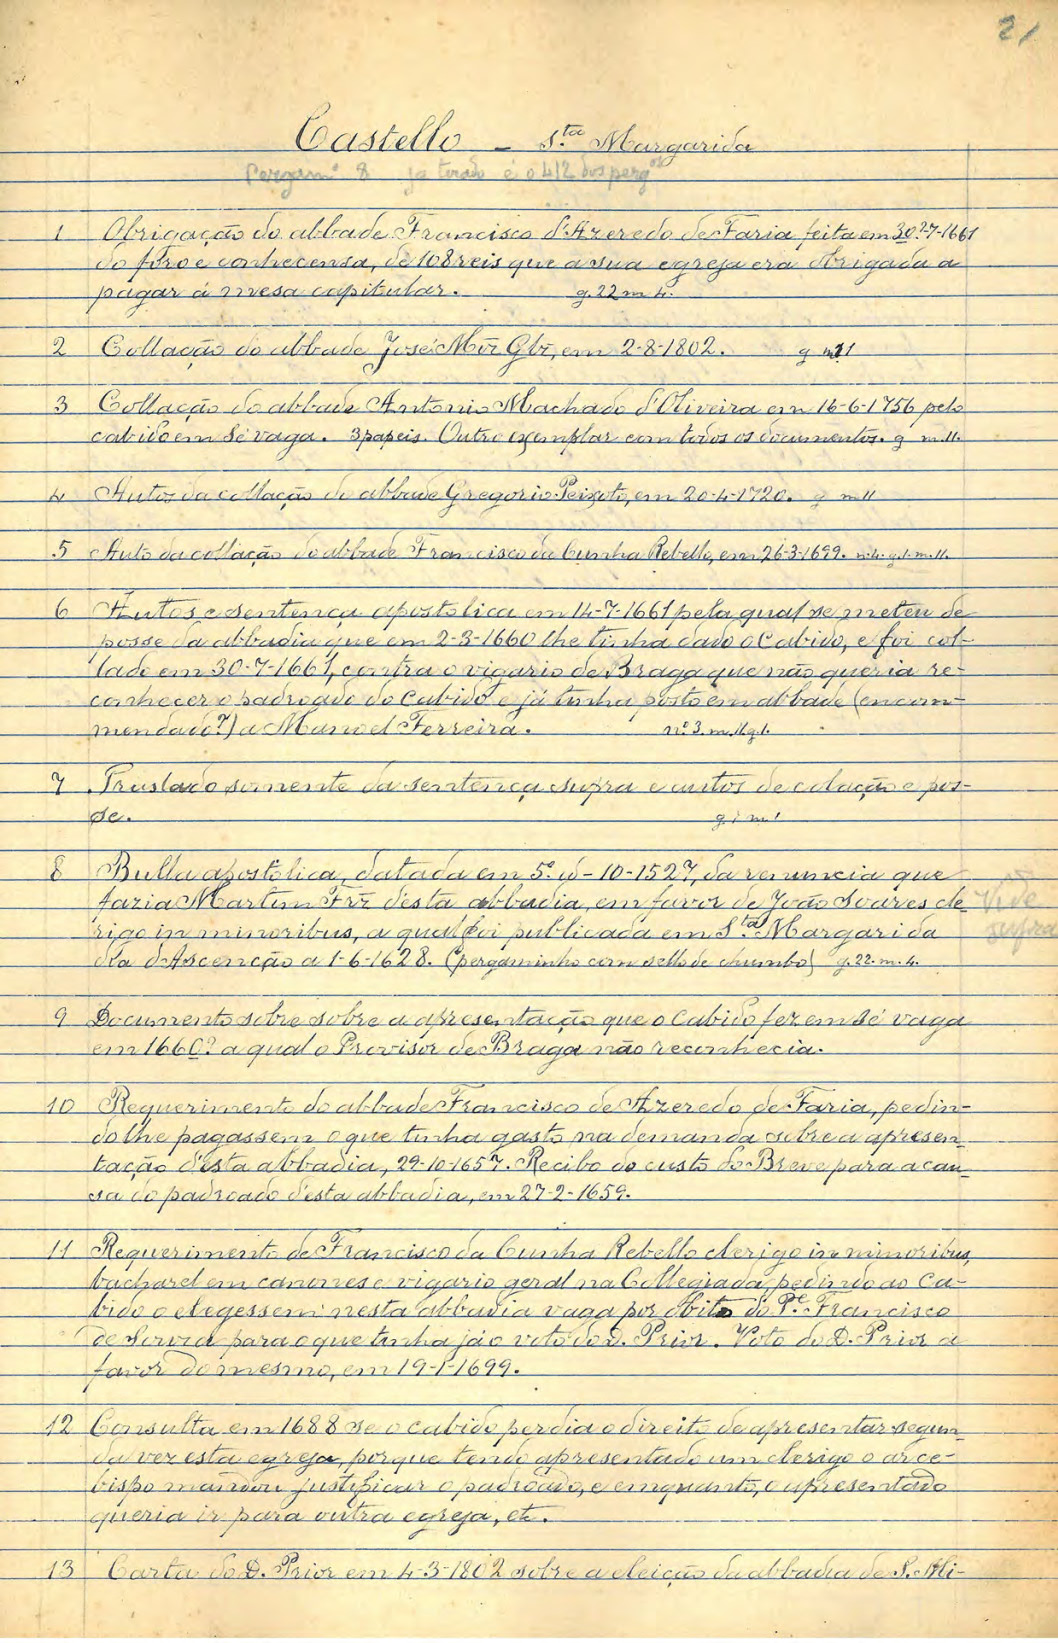 21
Castello - S.ta Margarida
Pergam.o 8 já tirado é o 412 dos perg.os
1 Obrigação do abbade Francisco d'Azeredo de Faria feita em 30?-7-1661
do fôro e conhecensa, de 108 reis que a sua egreja era obrigada a
pagar á mesa capitular. g. 22 m 4.
2 Collação do abbade José Mõz Glz, em 2-8-1802. g m 11
3 Collação do abbade Antonio Machado d'Oliveira em 16-6-1756 pelo
cabido em Sé vaga. 3 papeis. Outro exemplar com todos os documentos. g m. 11.
4 Autos da collação do abbade Gregorio Peixoto, em 20-4-1720. g m 11
5 Auto da collação do abbade Francisco da Cunha Rebello, em 26-3-1699. n. 4. g. 1. m. 11.
6 Autos e sentença apostolica em 14-7-1661 pela qual se meteu de
posse da abbadia que em 2-3-1660 lhe tinha dado o Cabido, e foi col-
lado em 30-7-1661, contra o vigario de Braga que não queria re-
conhecer o padroado do Cabido e já tinha posto em abbade (encom-
mendado?) a Manoel Ferreira. n.o 3. m. 11 g. 1.
7 Traslado somente da sentença supra e autos de colação e pos-
se. g 1 m 1
8 Bulla apostolica, datada em 5.o id - 10-1527, da renuncia que
fazia Martim Frz d'esta abbadia, em favor de João Soares cle-
rigo in minoribus, a qual foi publicada em S.ta Margarida
dia d'Ascenção a 1-6-1628. (pergaminho com sello de chumbo) g. 22. m. 4.
Vide
supra
9 Documento sobre sobre a apresentação que o Cabido fez em Sé vaga
em 1660? a qual o Provisor de Braga não reconhecia.
10 Requerimento do abbade Francisco de Azeredo de Faria, pedin-
do lhe pagassem o que tinha gasto na demanda sobre a apresen-
tação d'esta abbadia, 29-10-1657. Recibo do custo do Breve para a cau-
sa do padroado d'esta abbadia, em 27-2-1659.
11 Requerimento de Francisco da Cunha Rebello clerigo in minoribus,
bacharel em canones e vigario geral na Collegiada, pedindo ao Ca-
bido o elegessem nesta abbadia vaga por obito do P.e Francisco
de Souza para o que tinha já o voto do D. Prior. Voto do D. Prior a
favor do mesmo, em 19-1-1699.
12 Consulta em 1688 se o cabido perdia o direito de apresentar segun-
da vez esta egreja, porque tendo apresentado um clerigo o arce-
bispo mandou justificar o padroado, e emquanto, o apresentado
queria ir para outra egreja, etc.
13 Carta do D. Prior em 4-3-1802 sobre a eleição da abbadia de S. Mi-